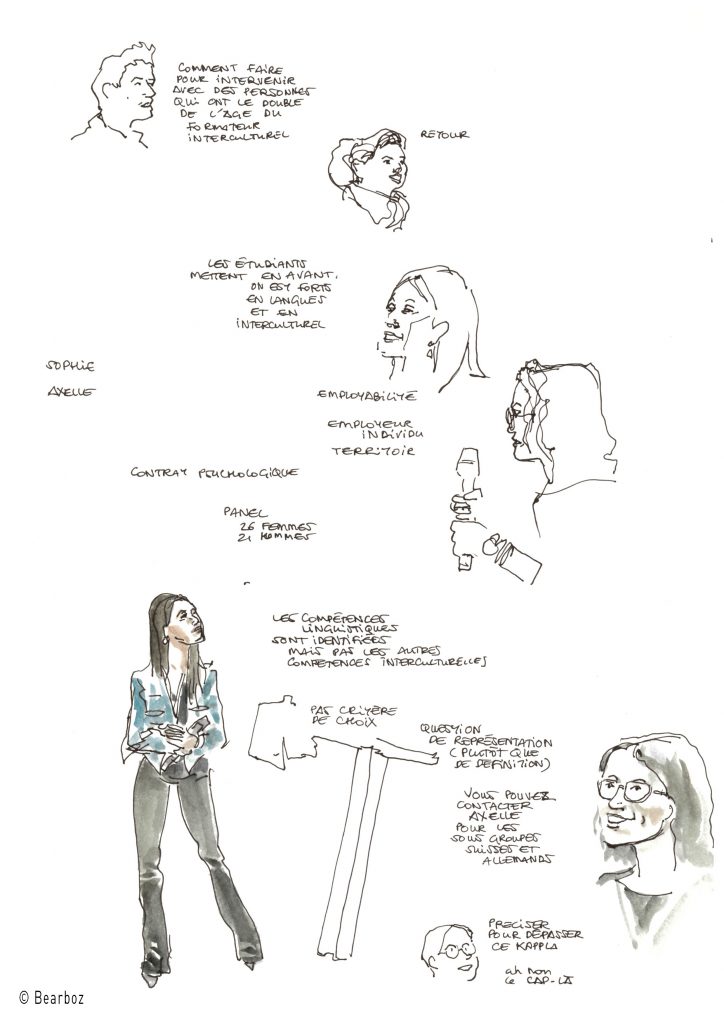 COMMENT FAIRE
POUR INTERVENIR
AVEC DES PERSONNES
QUI ONT LE DOUBLE
DE L'AGE DU
FORMATEUR
INTERCULTUREL
RETOUR
LES ÉTUDIANTS
METTENT EN AVANT.
ON EST FORTS
EN LANGUES
ET EN
INTERCULTUREL
SOPHIE
AXELLE
EMPLOYABILITÉ
EMPLOYEUR
INDIVIDU
TERRITOIR
CONTRAT PSYCHOLOGIQUE
PANEL
26 FEMMES
21 HOMMES
LES COMPÉTENCES
LINGUISTIQUES
SONT IDENTIFIÉES
MAIS PAS LES AUTRES
COMPETENCES INTERCULTURELLES
PAS CRITÈRE
DE CHOIX
QUESTION
DE REPRÉSENTATION
(PLUTÔT QUE
DE DEFINITION)
VOUS POUVEZ
CONTACTER
AXELLE
POUR LES
SOUS GROUPES
SUISSES ET
ALLEMANDS
PRECISER
POUR DÉPASSER
CE KAPPLA
ah non
ce CAP-LÀ
© Bearboz